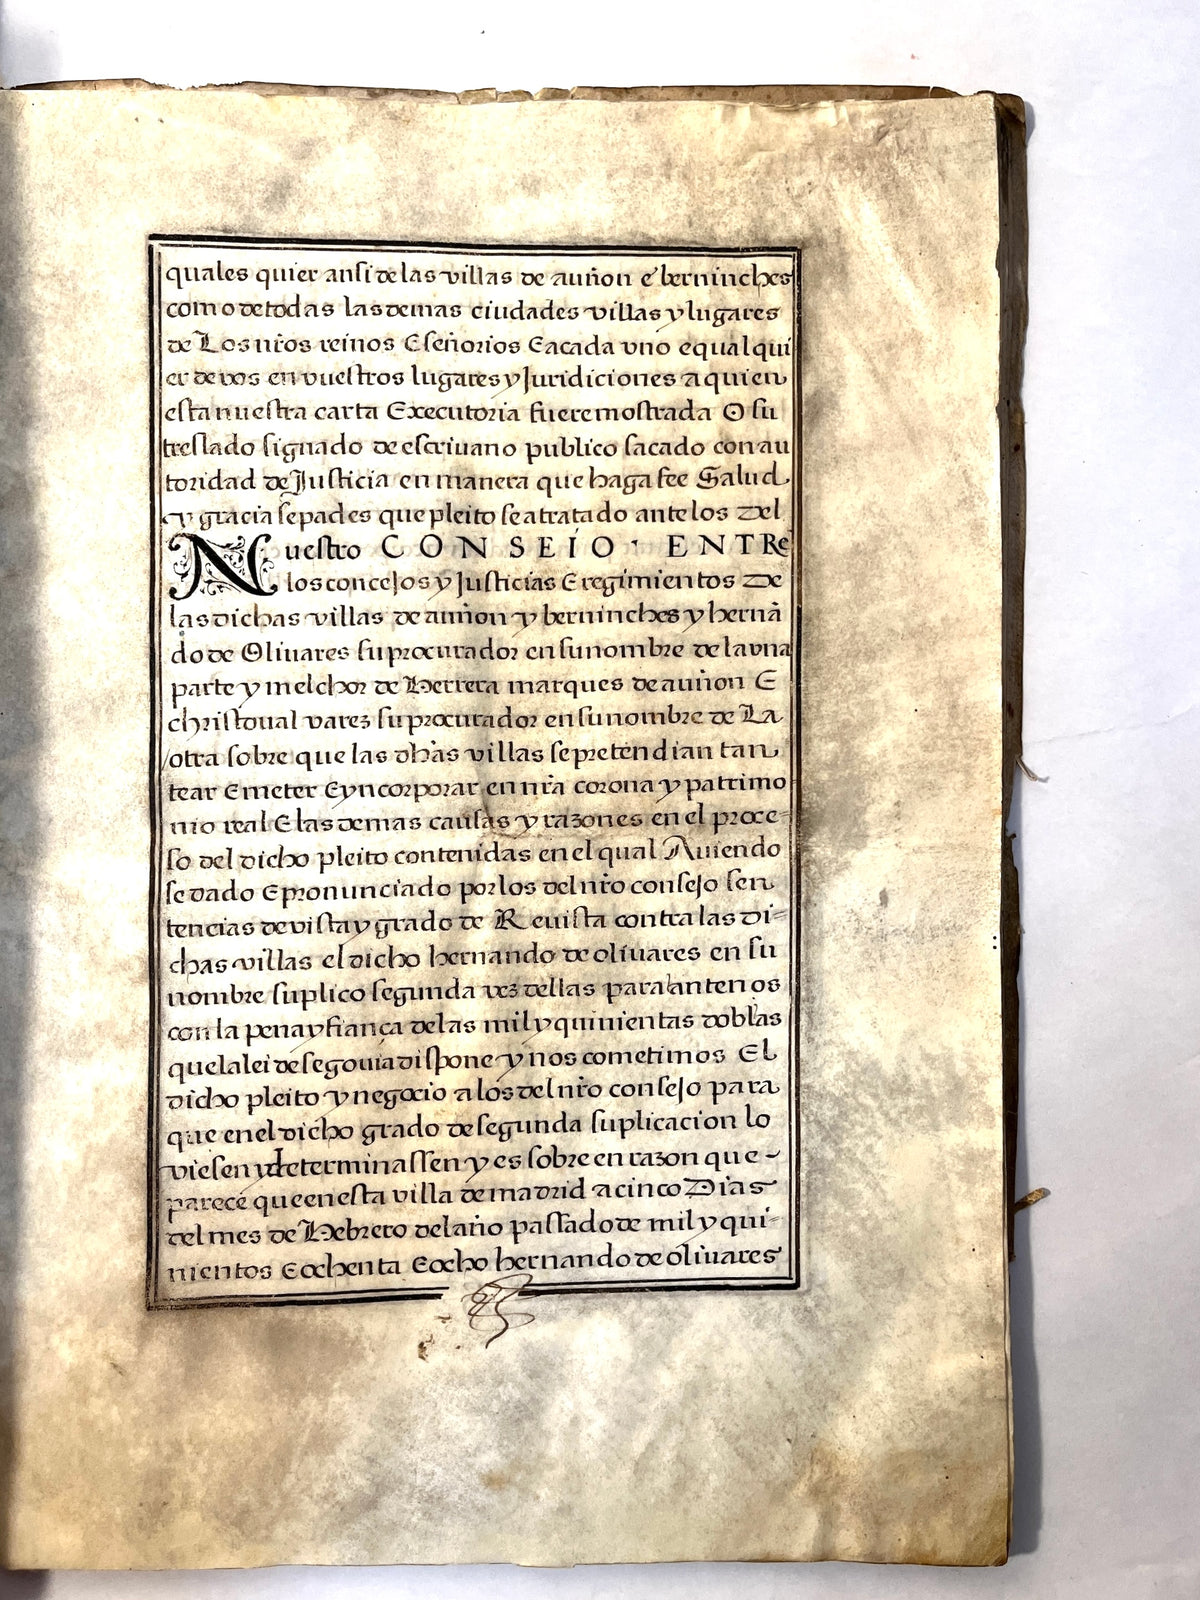 quales quier ansi de las villas de auñon e berninches
como de todas las demas ciudades villas y lugares
de Los nr̃os reinos E señorios E a cada vno e qual qui
er de vos en vuestros lugares y Juridiciones a quien
esta nuestra carta Executoria fuere mostrada O su
treslado signado de escriuano publico sacado con au
toridad de Justicia en manera que haga fee Salud
y gracia sepades que pleito se a tratado ante los Del
Nuestro CONSEIO· ENTRE
los concejos y Justicias E regimientos De
las dichas villas de auñon y berninches y hernã
do de Oliuares su procurador en su nombre de la vna
parte y melchor de Herrera marques de auñon E
christoual varez su procurador en su nombre de La
otra sobre que las dhas villas se pretendian tan
tear E meter E yncorporar en nr̃a corona y patrimo
nio real E las demas causas y razones en el proce-
so del dicho pleito contenidas en el qual Auiendo
se dado E pronunciado por los del nr̃o consejo sen
tencias de vista y grado de Reuista contra las di=
chas villas el dicho hernando de oliuares en su
nombre suplico segunda vez dellas para ante nos
con la pena y fiança de las mil y quinientas doblas
que la lei de segouia dispone y nos cometimos El
dicho pleito y negocio a los del nr̃o consejo para
que en el dicho grado de segunda suplicacion lo
viesen y determinassen y es sobre en razon que -
parece que en esta villa de madrid a cinco Dias
del mes de Hebrero del año passado de mil y qui-
nientos E ochenta E ocho hernando de oliuares